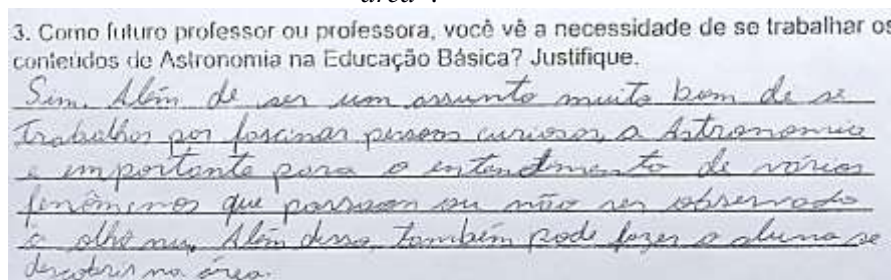 área".
3. Como futuro professor ou professora, você vê a necessidade de se trabalhar os
conteúdos de Astronomia na Educação Básica? Justifique.
Sim. Além de ser um assunto muito bom de se
trabalhar por fascinar pessoas curiosas, a Astronomia
é importante para o entendimento de vários
fenômenos que possam ou não ser observado
a olho nu. Além disso, também pode fazer o aluno se
descobrir na área.